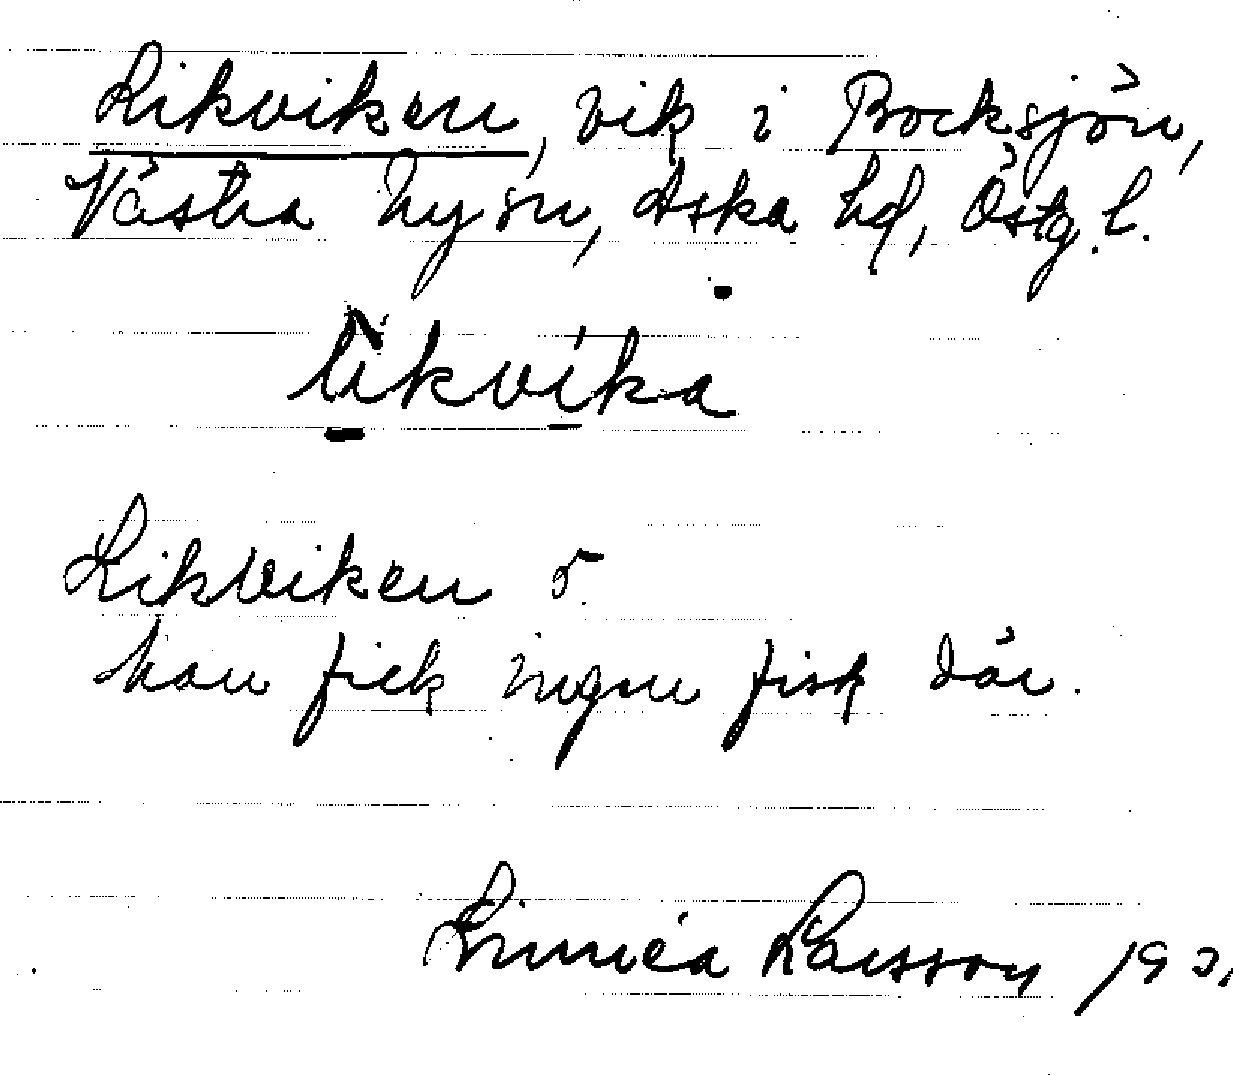 Likviken, vik i Bocksjön,
Västra Ny sn, Aska hd, Östg. l.
likvika
Likviken
han fick ingen fisk där.
Linnéa Larsson 19